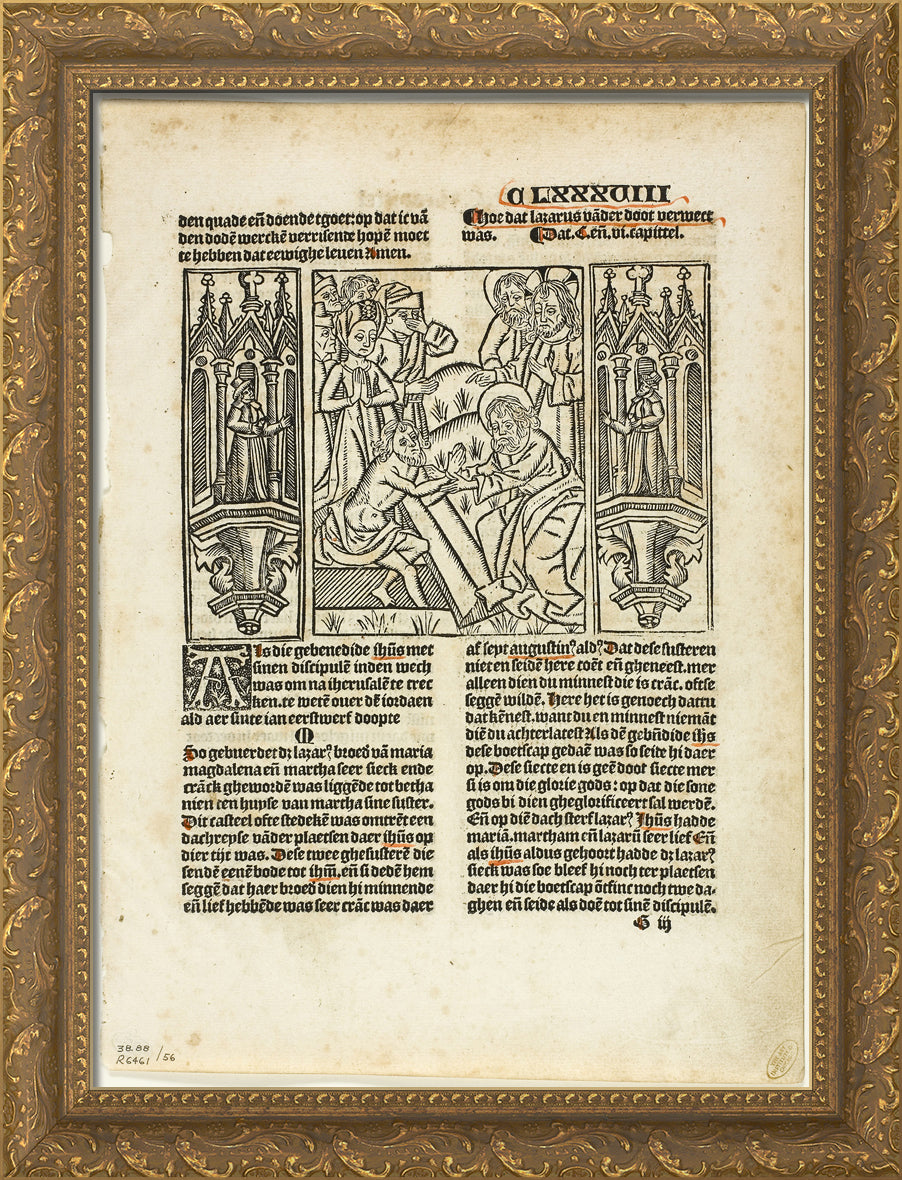 C LXXXVIII
den quade en̄ doende tgoet: op dat ic vā
den dodē werckē verrisende hopē moet
te hebben dat eewighe leuen Amen.
hoe dat lazarus vāder doot verwect
was. Dat. C. en̄. vi. capittel.
Als die gebenedide ihūs met
sinen discipulē inden wech
was om na iherusalē te trec
ken. te wetē ouer dē iordaen
ald aer sinte ian eerstwerf doopte
So gebuerdet dz lazarꝰ broed vā maria
magdalena en̄ martha seer sieck ende
crāck ghewordē was liggēde tot betha
nien ten huyse van martha sine suster.
Dit casteel ofte stedekē was omtrēt een
dachreyse vāder plaetsen daer ihūs op
dier tijt was. Dese twee ghesusterē die
sendē eenē bode tot ihm̄, en̄ si dedē hem
seggē dat haer broed dien hi minnende
en̄ lief hebbēde was seer crāc was daer
af sept augustinꝰ aldꝰ Dat dese susteren
niet en seidē here coēt en̄ gheneest. mer
alleen dien du minnest die is crāc. oftse
seggē wildē. Here het is genoech dattu
dat kēnest. want du en minnest niemāt
diē du achterlatest Als dē gebn̄dide ihs
dese boetscap gedaē was so seide hi daer
op. Dese siecte en is geē doot siecte mer
si is om die glorie gods: op dat die sone
gods bi dien gheglorificeert sal werdē.
En̄ op diē dach sterf lazarꝰ Ihūs hadde
mariā. martham en̄ lazarū seer lief En̄
als ihūs aldus gehoort hadde dz lazarꝰ
sieck was soe bleef hi noch ter plaetsen
daer hi die boetscap ōtfinc noch twe da-
ghen en̄ seide als doē tot sinē discipulē.
G iij
38.88
R6461 /56